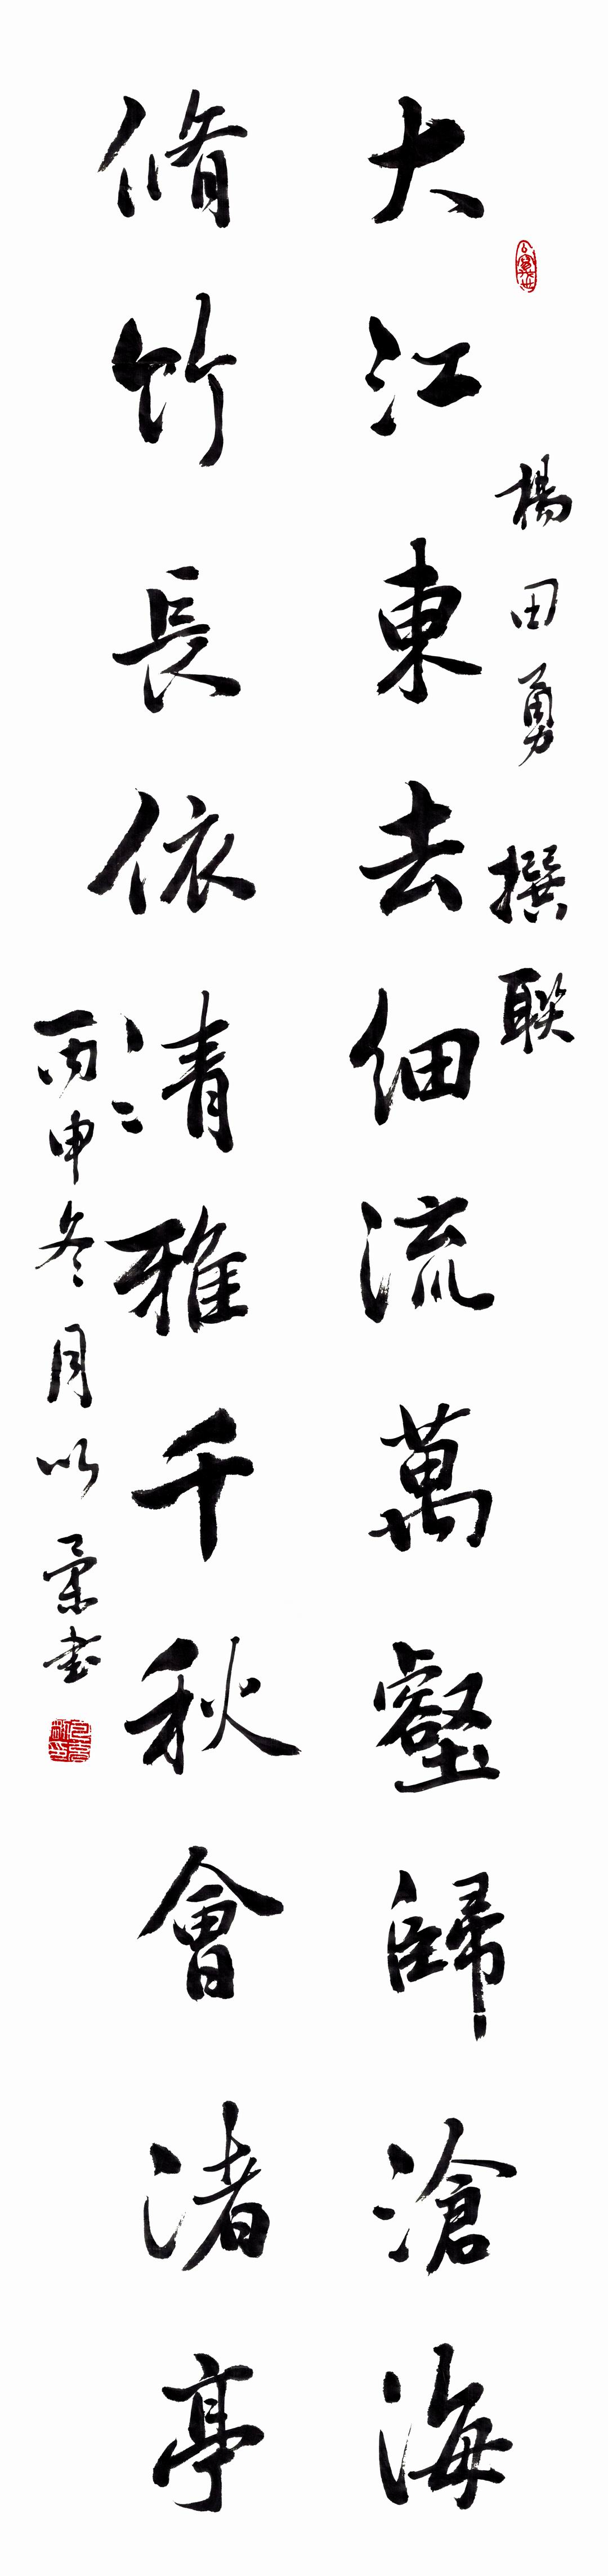 楊田勇撰聯
大江東去細流萬壑歸滄海
脩竹長依清雅千秋會渚亭
丙申冬月以彙書